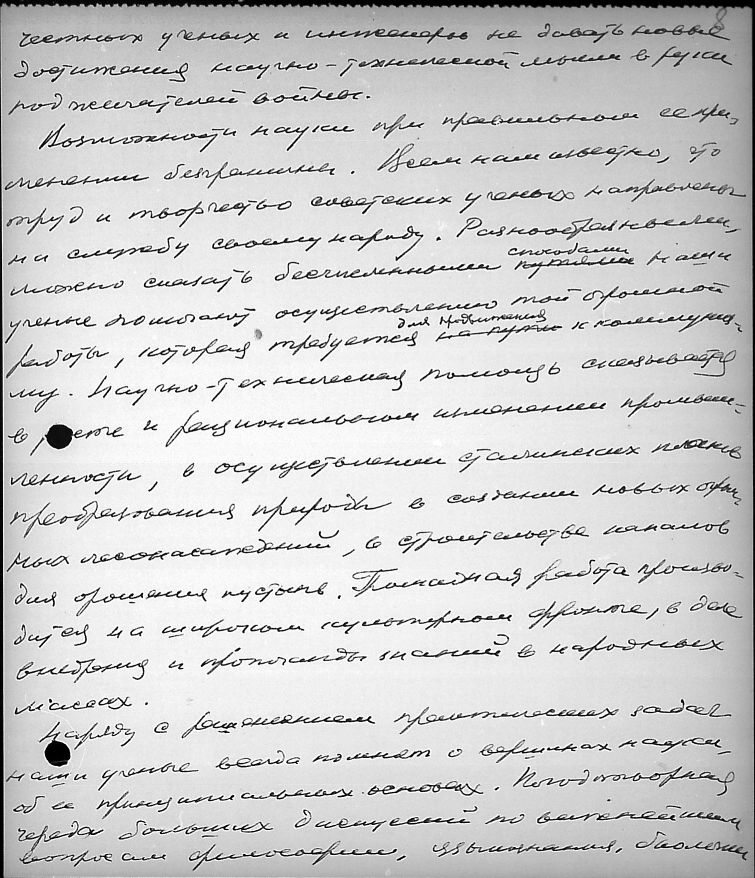 8
честных ученых и инженеров не давать новые
достижения научно-технической мысли в руки
поджигателей войны.
Возможности науки при правильном ее при-
менении безграничны. Всем нам известно, что
труд и творчество советских ученых направлены
на службу своему народу. Разнообразными,
можно сказать бесчисленными способами путями наши
ученые помогают осуществлению той огромной
работы, которая требуется для продвижения на пути к коммуниз-
му. Научно-техническая помощь сказывается
в росте и рациональном изменении промыш-
ленности, в осуществлении сталинских планов
преобразования природы в создании новых огром-
мых лесонасаждений, в строительстве каналов
для орошения пустынь. Громадная работа произво-
дится на широком культурном фронте, в деле
внедрения и пропаганды знаний в народных
массах.
Наряду с решением практических задач
наши ученые всегда помнят о вершинах науки,
об ее принципиальных основах. Плодотворная
череда больших дискуссий по важнейшим
вопросам философии, языкознания, биологии